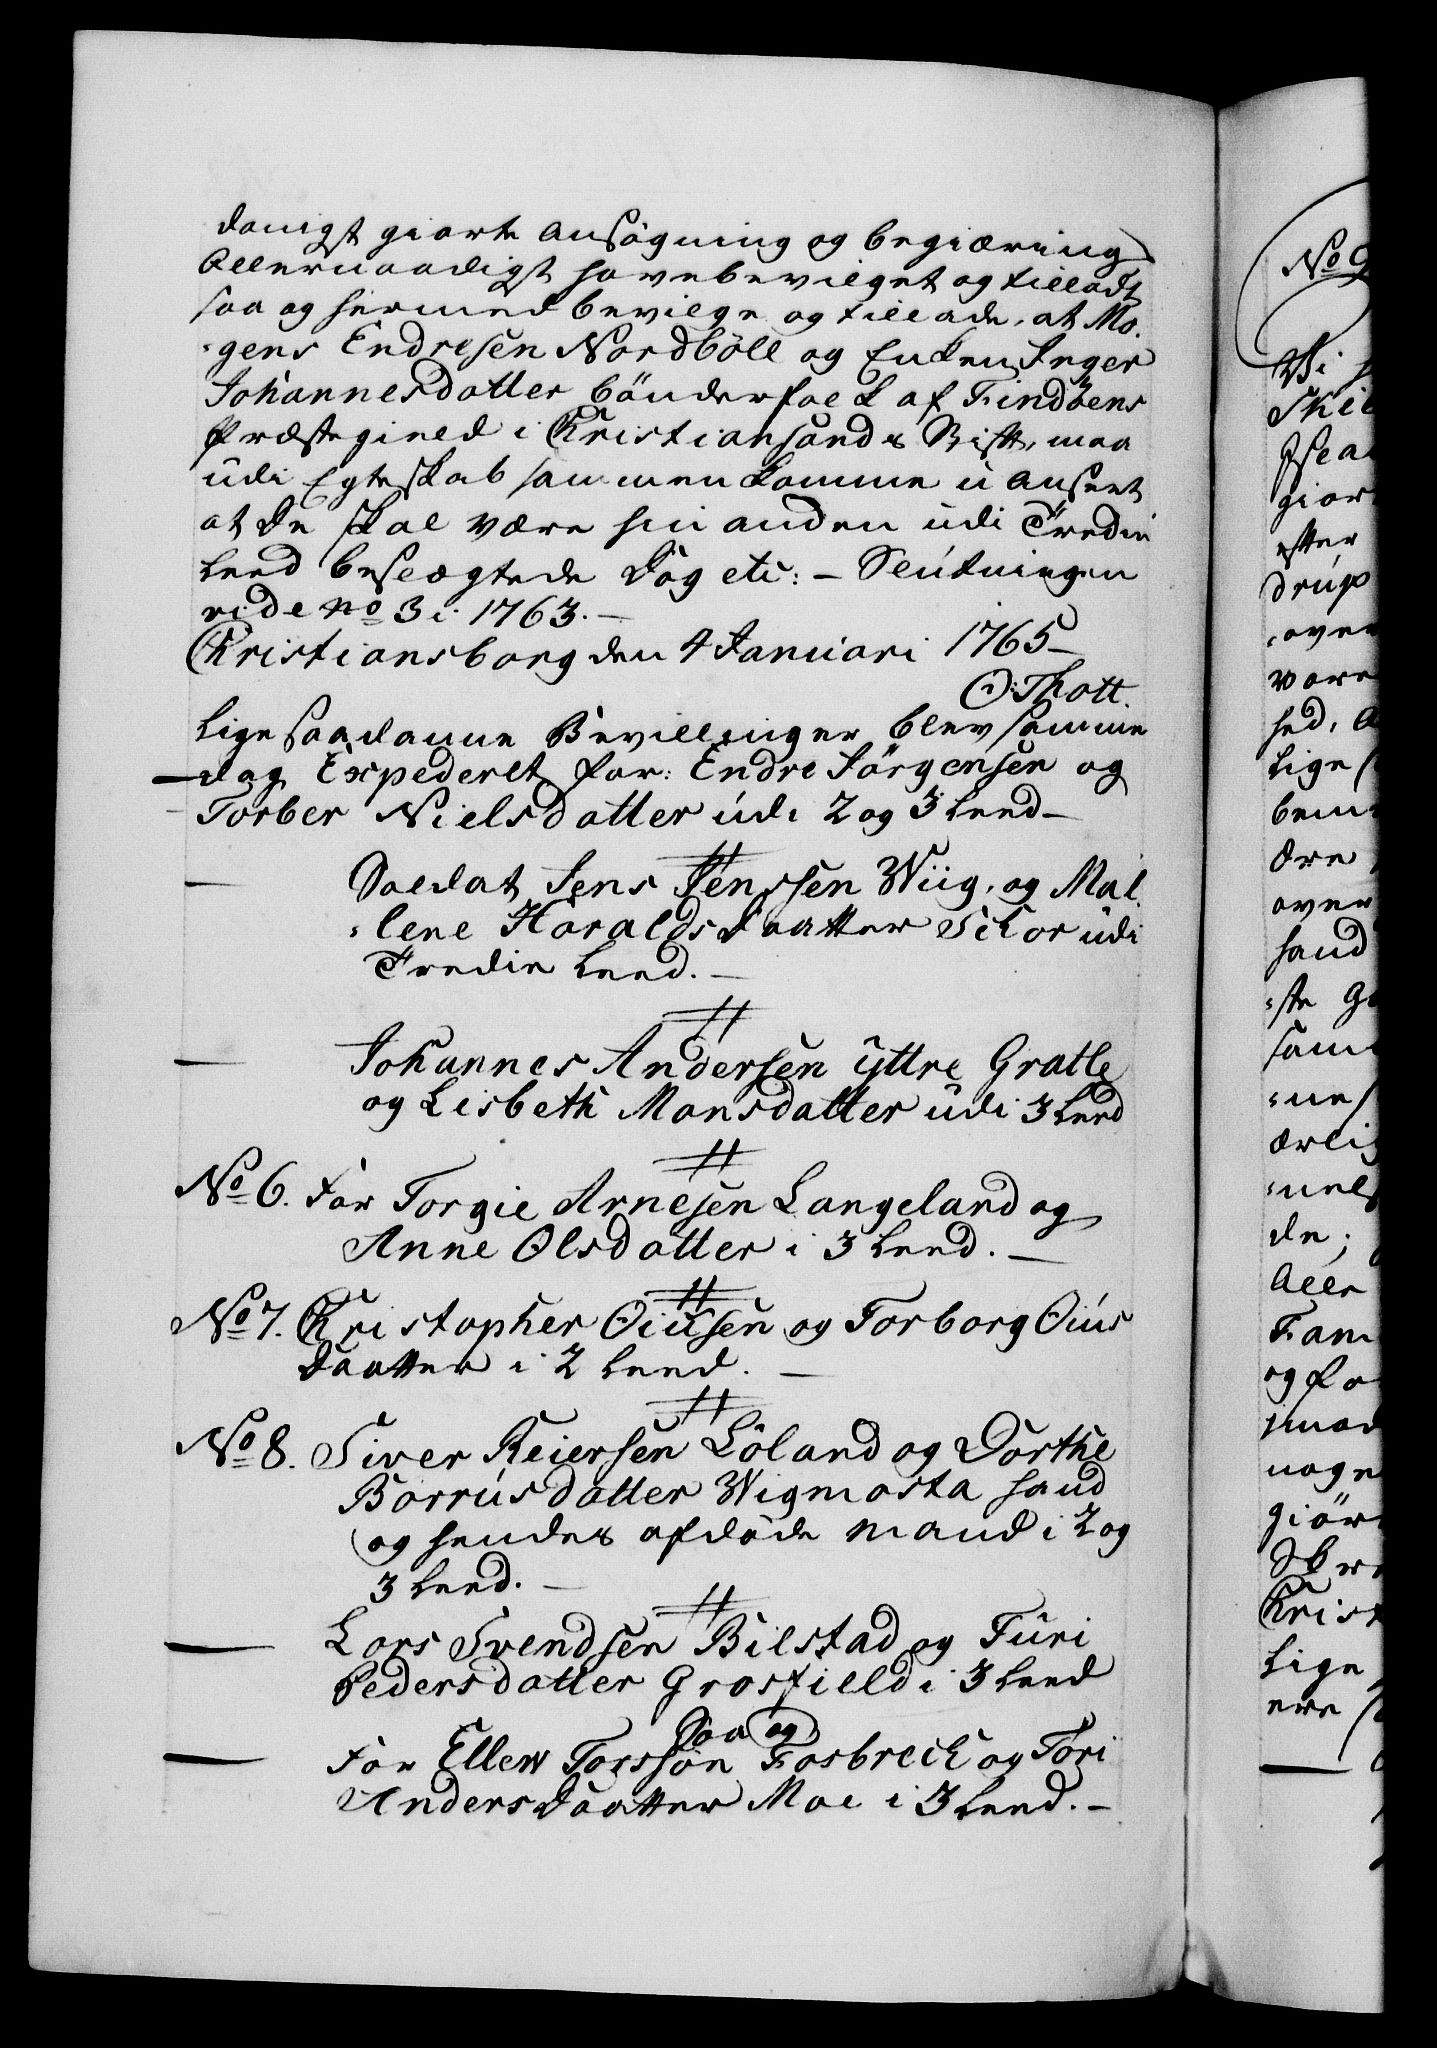 danigst giorte Ansøgning og begiæring
Allernaadigst have bevilget og tilladt
saa og hermed bevilge og tillade, at Mo-
-gens Endresen Nordböll og Enken Inger
Johannesdatter bönderfolk af Findöens
Præstegield i Kristiansands Stift, maa
udi Egteskab sammen komme u anseet
at de skal være hin anden udi Tredie
Leed beslægtede Dog etc: - Slutningen
vide No 3 i 1763. -
Kristiansborg den 4 Januari 1765 -
O: Thott.
Lige saadanne Bevillinger blev samme
dag Expederet for: Endre Jörgensen og
Torber Nielsdatter udi 2 og 3 Leed -
Soldat Jens Jenssen Wiig, og Mal-
-lene Haraldsdaatter Schor udi
Tredie Leed. -
Johannes Andersen yttre Gratle
og Lisbeth Monsdatter udi 3 Leed
No 6. For Torgie Arnesen Langeland og
Anne Olsdatter i 3 Leed. -
No 7. Kristopher Oiusen og Torborg Oius
Daatter i 2 Leed. -
No 8. Siver Reiersen Löland og Dorthe
Borrusdatter Wigmosta hand
og hendes afdøde Mand i 2 og
3 Leed. -
Lars Svendsen Bilstad og Turi
Pedersdatter Grosfield i 3 Leed
Saa og
For Ellew Torssøn Fosbreck og Tori
Andersdaatter Moe i 3 Leed. -
No 9
Vi
giort
efter
over
vore
hed, A
Lige
bem
ære
over
hand
-ste
sam
ærlig
de;
Alle
Fam
og fo
noge
giör
Krist
Lige